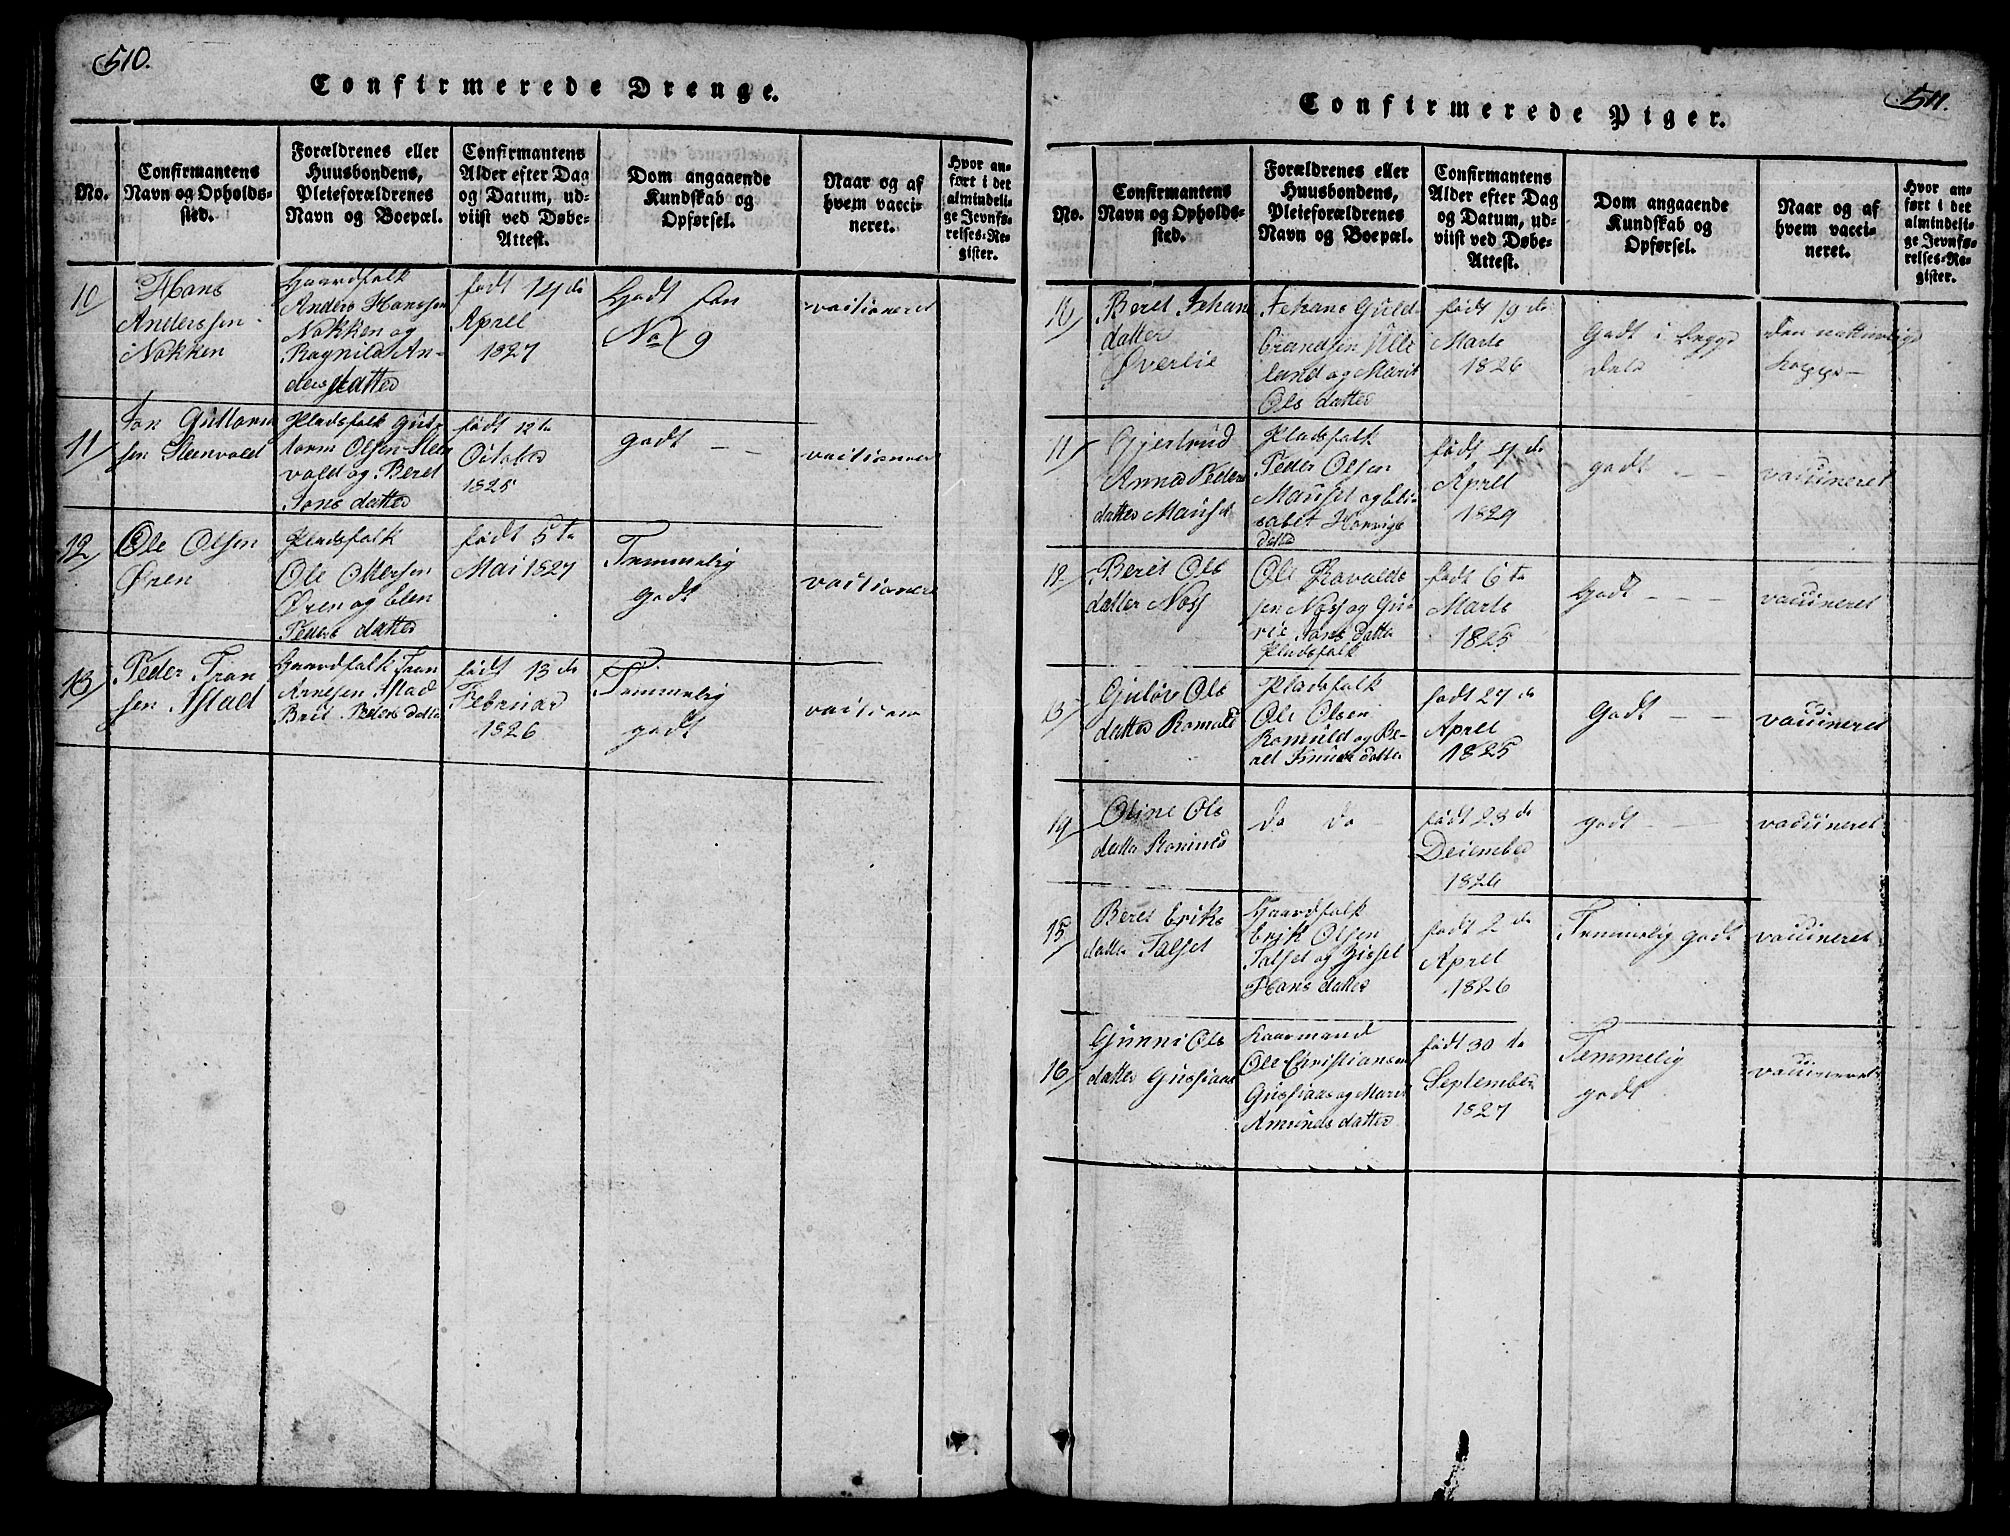 510.
Confirmerede Drenge.
No.
Confirmantens
Navn og Opholds-
sted.
Forældrenes eller
Huusbondens,
Pleieforældrenes
Navn og Boepæl.
Confirmantens
Alder efter Dag
og Datum, ud-
viist ved Døbe-
Attest.
Dom angaaende
Kundskab og
Opførsel.
Naar og af
hvem vacci-
neret.
Hvor an-
ført i det
almindeli-
ge Jevnfø-
relses-Re-
gister.
10
Hans
Anderssen
Nokken
Gaardfolk
Anders Hanssen
Nokken og
Ragnild An-
ders datter
født 14 de
April
1827
Godt som
No 9
vactioneret
11
Jon Guttorm
sen Steenvold
Pladsfolk Gut-
torm Olsen Steen
vold og Beret
Jons datter
født 12 te
October
1825
godt — —
vactioneret
12
Ole Olsen
Øren
Pladsfolk
Ole Ottersen
Øren og Elen
Peders datter
født 5 te
Mai 1827
Temmelig
godt
vactioneret
13
Peder Tron
sen Astad
Gaardfolk Tron
Arnesen Astad
Brit Peders datter
født 13 de
Februar
1826
Temmelig
godt
vaction
511.
Confirmerede Piger.
No.
Confirmantens
Navn og Opholds-
sted.
Forældrenes eller
Huusbondens,
Pleieforældrenes
Navn og Boepæl.
Confirmantens
Alder efter Dag
og Datum, ud-
viist ved Døbe-
Attest.
Dom angaaende
Kundskab og
Opførsel.
Naar og af
hvem vacci-
neret.
Hvor an-
ført i det
almindeli-
ge Jevnfø-
relses-Re-
gister.
10
Beret Johans
datter
Øverlie
Johans Guld
brandsen
land og Marit
Ols datter
født 19 de
Marts
1826
Godt i begge
dele
den naturlige
koppe —
11
Gjertrud
Anna Peders
datter Mauset
Pladsfolk
Peder Olsen
Mauset og Eli
sabet
datter
født 4 de
April
1829
godt —
vaccineret
12
Beret Ols
datter Noss
Ole Havalds
sen Noss og Gu-
rie Jons datter
Pladsfolk
født 6 te
Marts
1825
Godt — — —
vaccineret
13
Guløv Ols
datter Romuld
Pladsfolk
Ole Olsen
Romuld og Be-
ret Knuds datter
født 27 de
April
1825
Godt — —
vaccineret
14
Oline Ols
datter Romuld
do do
født 28 de
December
1826
godt — —
vaccineret
15
Beret Eriks
datter Talset
Gaardfolk
Erik Olsen
Talset og Zissel
Hans datter
født 2 de
April
1826
Temmelig godt
vaccineret
16
Gunni Ols
datter Gussiaas
Kaarmand
Ole Christiansen
Gussiaas og Marit
Amunds datter
født 30 te
September
1827
Temmelig
godt
vaccineret